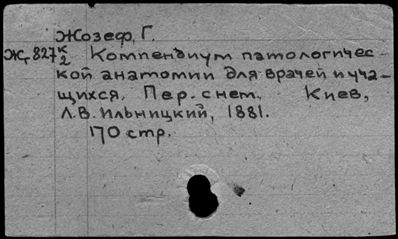 Жозеф, Г.
Ж, 827 К/2 Компендиум патологичес-
кой анатомии для врачей и уча-
щихся. Пер. с нем. Киев,
Л.В. Ильницкий, 1881.
170 стр.